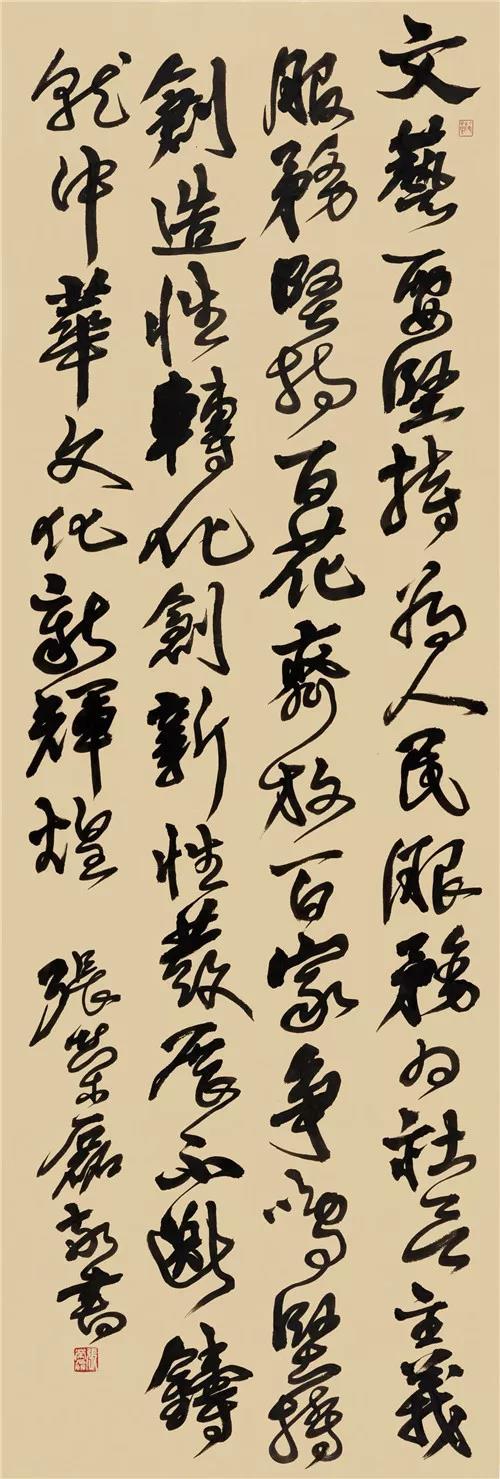 文藝要堅持為人民服務為社會主義
服務堅持百花齊放百家爭鳴堅持
創造性轉化創新性發展不斷鑄
就中華文化新輝煌 張榮磊敬書